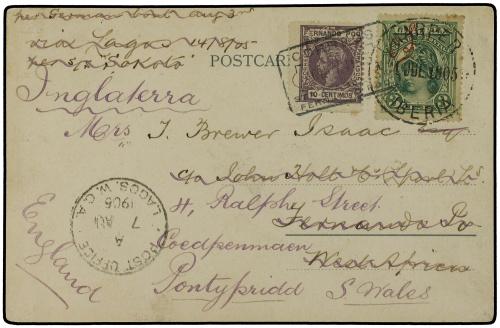 per German boat Aug 3rd
via Lagos 14/8/05
per s/s "Sokoto"
POSTCARD
FERNANDO POO
10 CENTIMOS
Inglaterra
Mrs J. Brewer Isaac
c/o John Holt & Co
41, Ralph Street
Fernando Po
Coedpenmaen
West Africa
Pontypridd
S. Wales
England
POST OFFICE
A
7
AU
1905
LAGOS. W.C.A.
1905